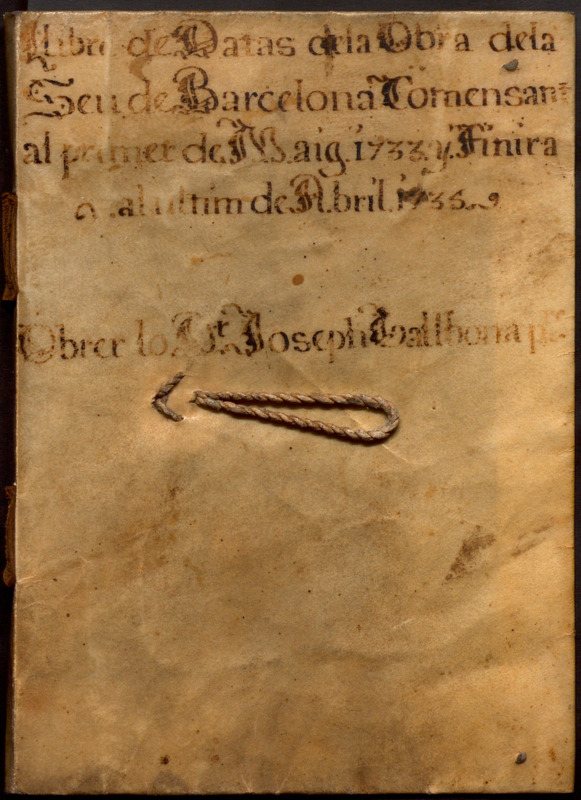 Llibre de Datas de la Obra dela
Seu de Barcelona Comensant
al primer de Maig. 1733. y Finira
al ultim de Abril. 1735.
Obrer lo Dr. Joseph Vallbona